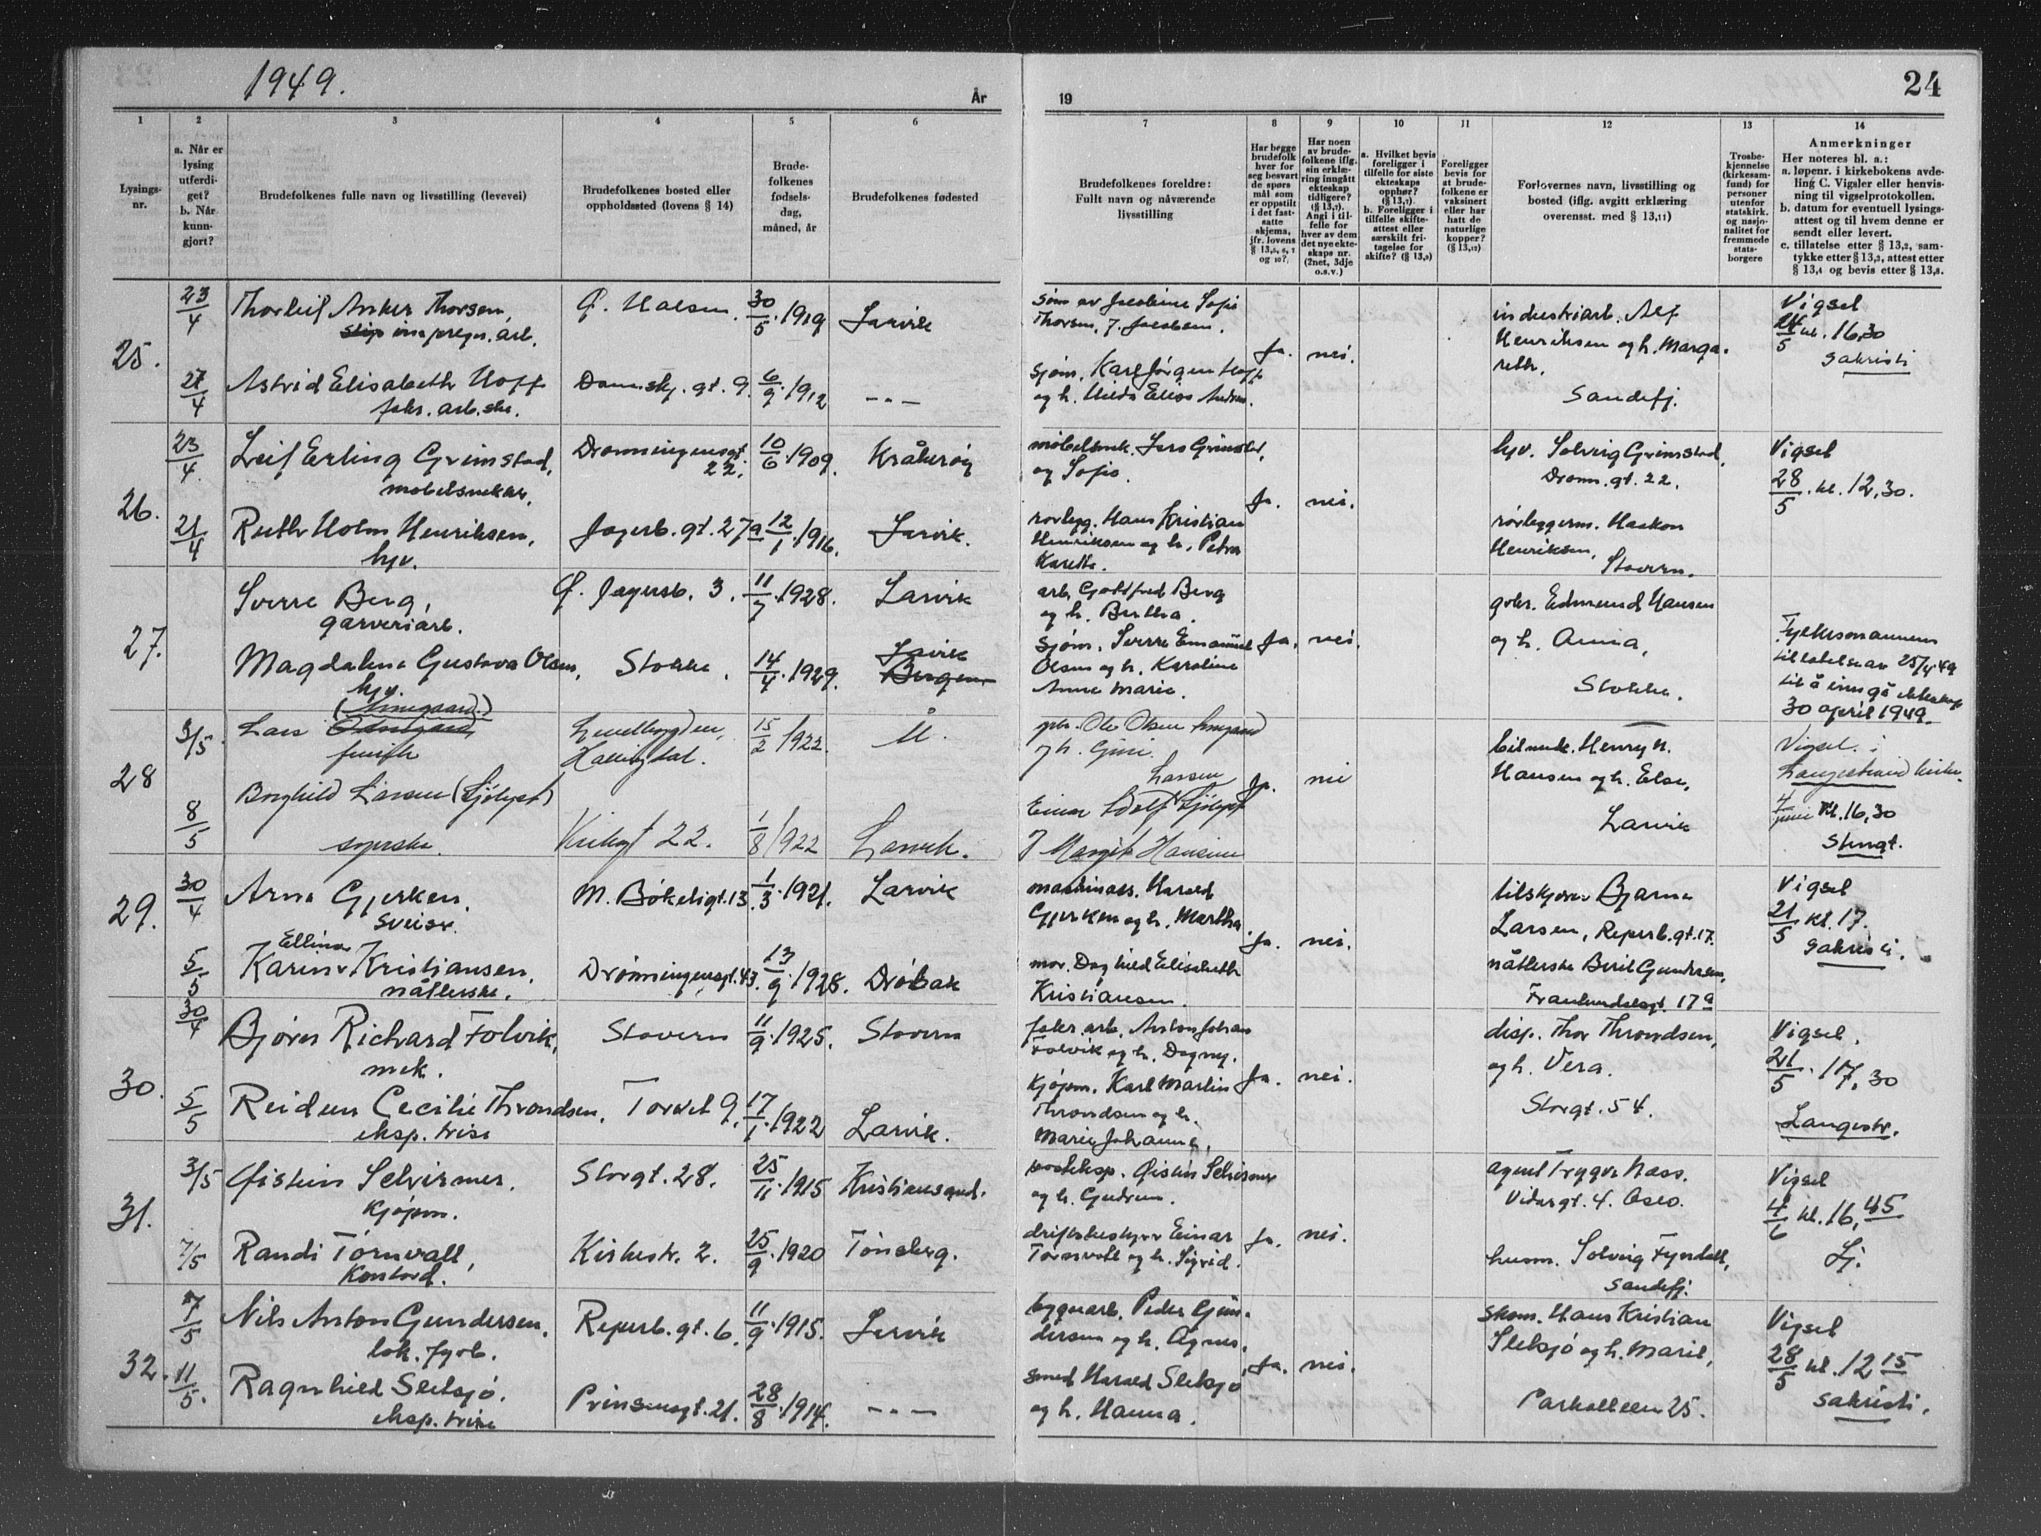 1949.
År
19
24
1
2
3
4
5
6
7
8
9
10
11
12
13
14
Lysings-
nr.
a. Når er
lysing
utferdi-
get?
b. Når
kunn-
gjort?
Brudefolkenes fulle navn og livsstilling (levevei)
Brudefolkenes bosted eller
oppholdssted (lovens § 14)
Brude-
folkenes
fødsels-
dag,
måned, år
Brudefolkenes fødested
Brudefolkenes foreldre:
Fullt navn og nåværende
livsstilling
Har begge
brudefolk
hver for
seg besvart
de spørs-
mål som
er oppstilt
i det fast-
satte
skjema,
jfr. lovens
§ 13,5, 6, 7
og 10?
Har noen
av brude-
folkene iflg.
sin erklæ-
ring inngått
ekteskap
tidligere?
(§ 13,7).
Angi i til-
felle for
hver av dem
det nye ekte-
skaps nr.
(2net, 3dje
o.s.v.)
a. Hvilket bevis
foreligger i
tilfelle for siste
ekteskaps
opphør?
(§ 13,7).
b. Foreligger i
tilfelle skifte-
attest eller
særskilt fri-
tagelse for
skifte? (§ 13,9)
Foreligger
bevis for
at brude-
folkene er
vaksinert
eller har
hatt de
naturlige
kopper?
(§ 13,12)
Forlovernes navn, livsstilling og
bosted (iflg. avgitt erklæring
overensst. med § 13,11)
Trosbe-
kjennelse
(kirkesam-
fund) for
personer
utenfor
statskirk.
og nasjo-
nalitet for
fremmede
stats-
borgere
Anmerkninger
Her noteres bl. a.:
a. løpenr. i kirkebokens avde-
ling C. Vigsler eller henvis-
ning til vigselprotokollen.
b. datum for eventuell lysings-
attest og til hvem denne er
sendt eller levert.
c. tillatelse etter § 13,2, sam-
tykke etter § 13,3, attest etter
§ 13,4 og bevis etter § 13,8.
25.
23/4
Thorleif Anker Thorsen,
impregn. arb.
Ø. Halsen.
30/5.1919
Larvik
søn av Jacobine Sofie
Thorsen, f. Jacobsen.
Ja. nei.
industriarb. Alf
Henriksen og h. Marga-
reth.
Sandefj.
Vigsel
24/5 kl. 16,30
sakristi
27/4
Astrid Elisabeth Hoff
fabr. arb.ske.
Dam.skj. gt. 9.
6/9.1912
-"-
sjøm. Karl Jørgen Hoff
og h. Hilda Elise
26.
23/4.
Leif Erling Grimstad,
møbelsnekker,
Dronningensgt
22.
10/6.1909.
Kråkerøy
møbelsnek. Jens Grimstad,
og Sofie.
Ja. nei.
hjv. Solveig Grimstad,
Dronn. gt. 22.
Vigsel
28/5. kl. 12,30.
21/4
Ruth Holm Henriksen,
hjv.
Jegerb. gt. 27a
12/1.1916.
Larvik.
rørlegg. Hans Kristian
Henriksen og h. Petra
Karette.
rørleggerm. Haakon
Henriksen,
Stavern.
27.
Sverre Berg,
garveriarb.
Ø. Jegersb. 3.
11/7.1928.
Larvik
arb. Gottfred Berg
og h. Bertha.
Ja. nei.
gbr. Edmund Hansen
og h. Anna,
Stokke.
Fylkesmannens
tillatelse av 25/4 49
til å inngå ekteskap
30 april 1949.
Magdalene Gustava Olsen,
hjv.
Stokke.
14/4.1929.
Larvik
Bergen
sjøm. Sverre Emanuel
Olsen og h. Karoline
Anne Marie.
28
3/5.
Lars
15/2 1922.
Ål.
og h. Guri.
Ja. nei
Henry H.
Hansen og h. Else,
Larvik
Vigsel i
Langestrand kirke.
7/juni kl. 16,30
Stengt.
8/5
Borghild Larsen (Sjølyst)
syerske.
Kirkegt 22.
1/8 1922
Larvik.
Larsen
Einar Adolf Sjølyst
og Margit Hansine
29.
30/4
Arne Gjerken.
sveiser.
M. Bøkeligt. 13.
1/3.1921.
Larvik
maskinass. Harald
Gjerken og h. Martha.
Ja. nei.
Bjarne
Larsen, Reperb. gt. 17.
nåtlerske Beril Gundersen,
17a
Vigsel
21/5 kl. 17.
sakristi.
5/5
Ellinor
Karin Kristiansen,
nåtlerske.
Dronningensgt. 43.
13/9.1928.
Drøbak
mor. Daghild Elisabeth
Kristiansen.
30.
30/4
Bjørn Richard Folvik,
mek.
Stavern
11/9.1925.
Stavern
fabr. arb. Anton Johan
Folvik og h. Dagny.
Ja. nei.
disp. Thor Throndsen,
og h. Vera.
Storgt. 54.
Vigsel.
21/5. 17,30
Langestr.
5/5
Reidun Cecilie Throndsen,
eksp. trise
Torvet 9.
17/1.1922
Larvik.
kjøpm. Karl Martin
Throndsen og h.
Marie Johanne.
31.
3/5
Øistein Schirmer.
kjøpm.
Storgt. 28.
25/11.1915
Kristiansund.
posteksp. Øistein Schirmer
og h. Gudrun.
Ja. nei.
agent Trygve Næss.
Vidargt. 4. Oslo.
Vigsel
4/6 kl. 16,45
Lj.
7/5
Randi Tørnvall,
kontord.
Kirkestr. 2.
25/9.1920
Tønsberg.
driftsbestyrer Einar
Tørnvall og h. Sigrid.
husm. Solveig
Sandefj.
32.
7/5
Nils Anton Gundersen,
lok. fyrb.
Reperb. gt. 6.
11/9.1915.
Larvik
byguarb. Peder Gun-
dersen og h. Agnes.
Ja. nei.
skom. Hans Kristian
Sletsjø og h. Marit,
Parkalleen 25.
Vigsel
28/5 kl. 12 15
sakristi.
11/5.
Ragnhild Sletsjø.
eksp. trise
Prinsensgt. 21.
28/8.1914.
-"-
smed Harald Sletsjø
og h. Hanna.